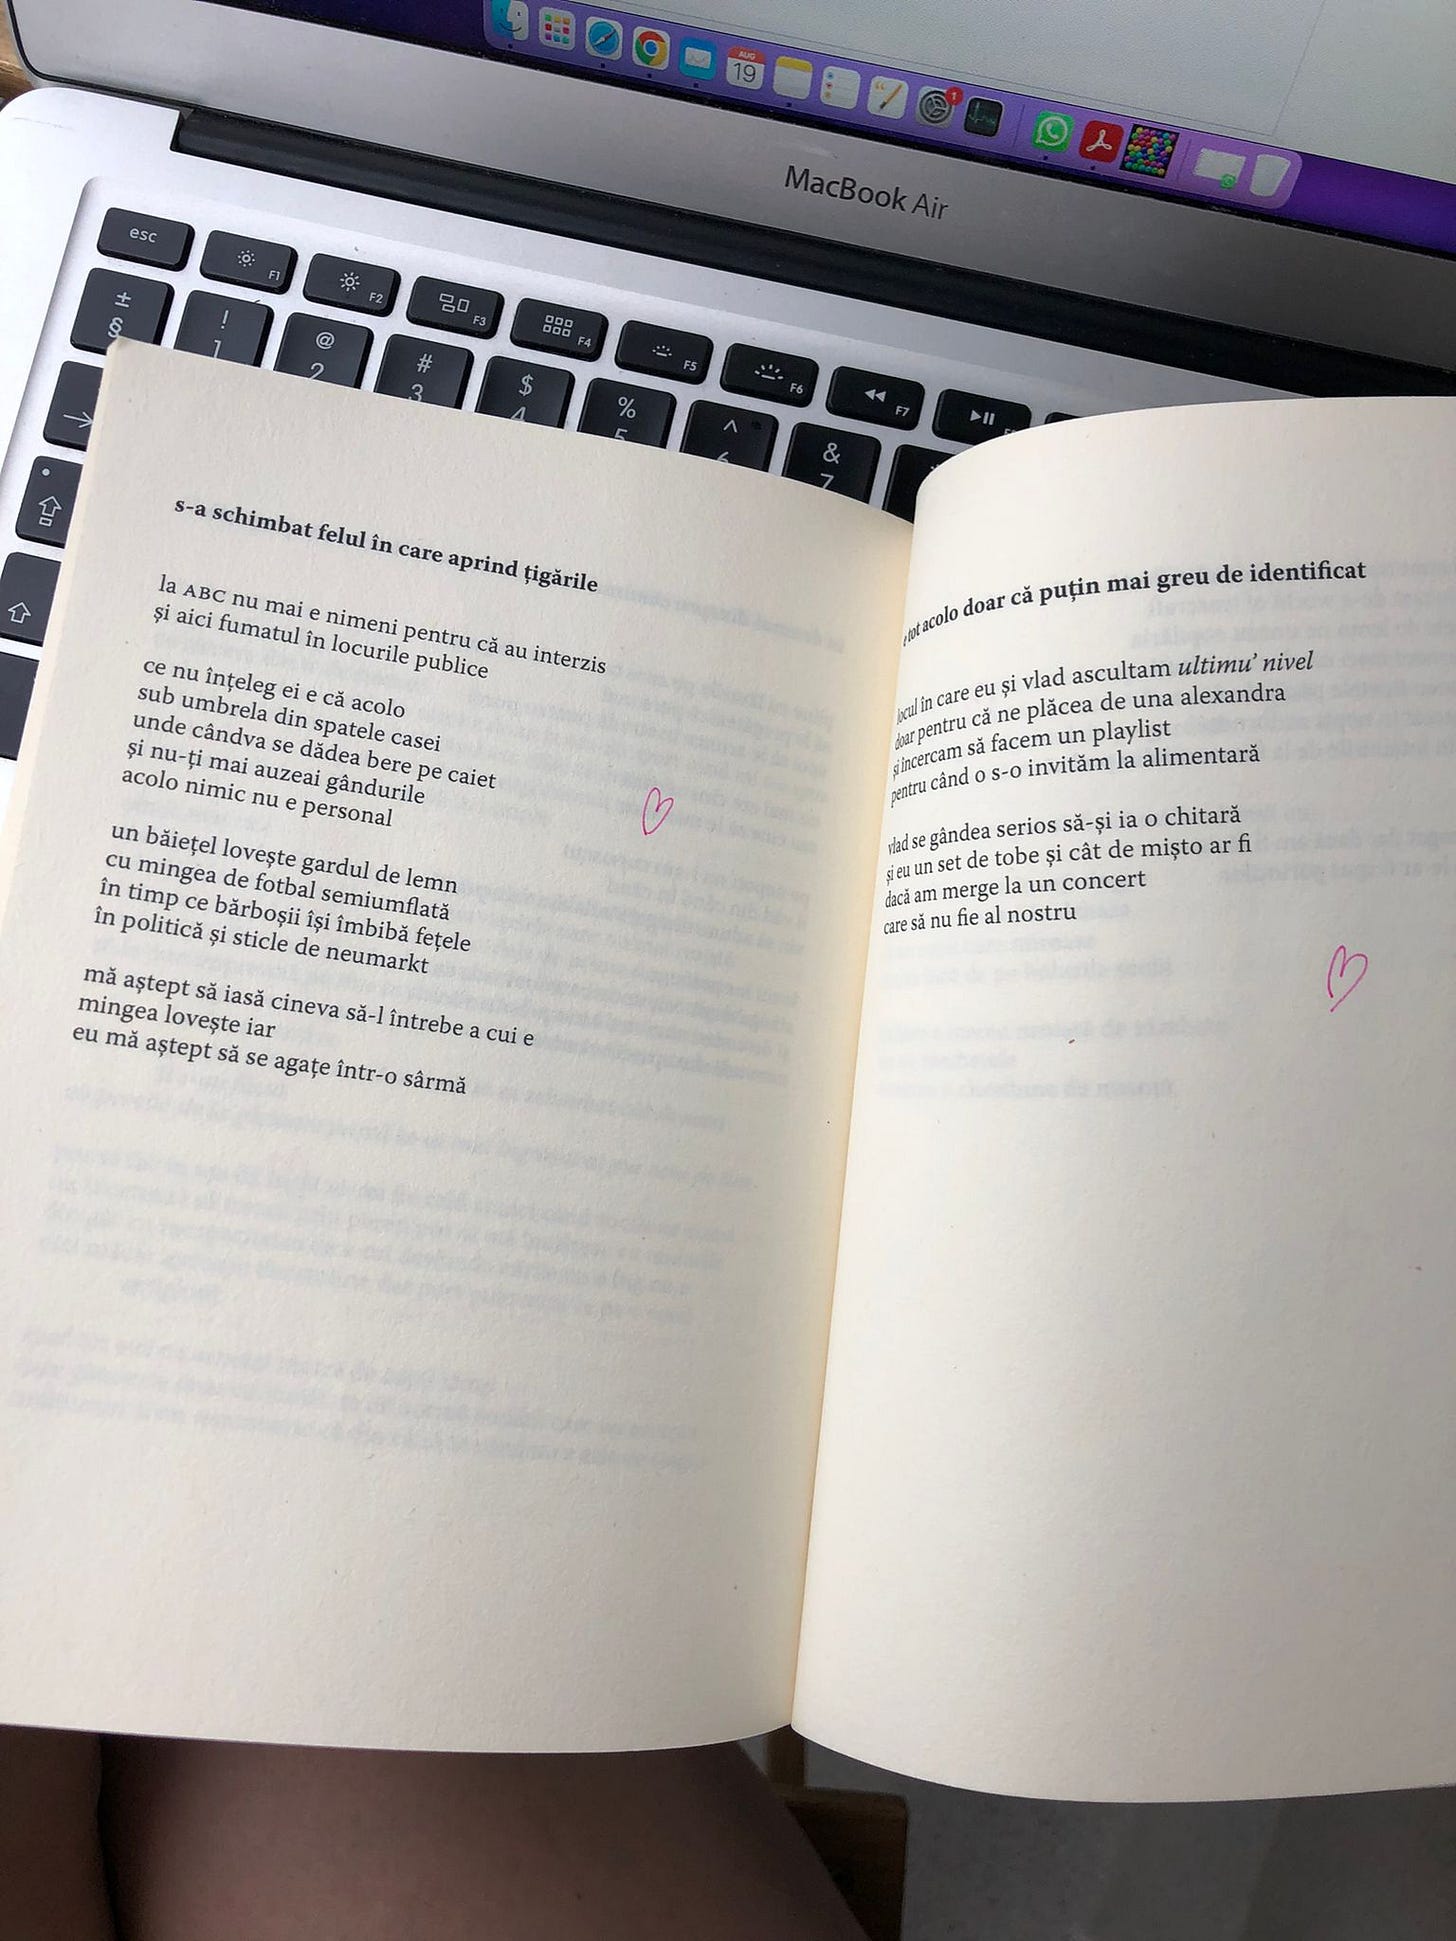 AUG
19
1
MacBook Air
esc
F1
F2
F3
F4
F5
F6
F7
±
§
!
1
@
2
#
3
$
4
%
5
^
6
&
7
s-a schimbat felul în care aprind țigările
la ABC nu mai e nimeni pentru că au interzis
și aici fumatul în locurile publice
ce nu înțeleg ei e că acolo
sub umbrela din spatele casei
unde cândva se dădea bere pe caiet
și nu-ți mai auzeai gândurile
acolo nimic nu e personal
un băiețel lovește gardul de lemn
cu mingea de fotbal semiumflată
în timp ce bărboșii își îmbibă fețele
în politică și sticle de neumarkt
mă aștept să iasă cineva să-l întrebe a cui e
mingea lovește iar
eu mă aștept să se agațe într-o sârmă
e tot acolo doar că puțin mai greu de identificat
locul în care eu și vlad ascultam ultimu' nivel
doar pentru că ne plăcea de una alexandra
și încercam să facem un playlist
pentru când o s-o invităm la alimentară
vlad se gândea serios să-și ia o chitară
și eu un set de tobe și cât de mișto ar fi
dacă am merge la un concert
care să nu fie al nostru